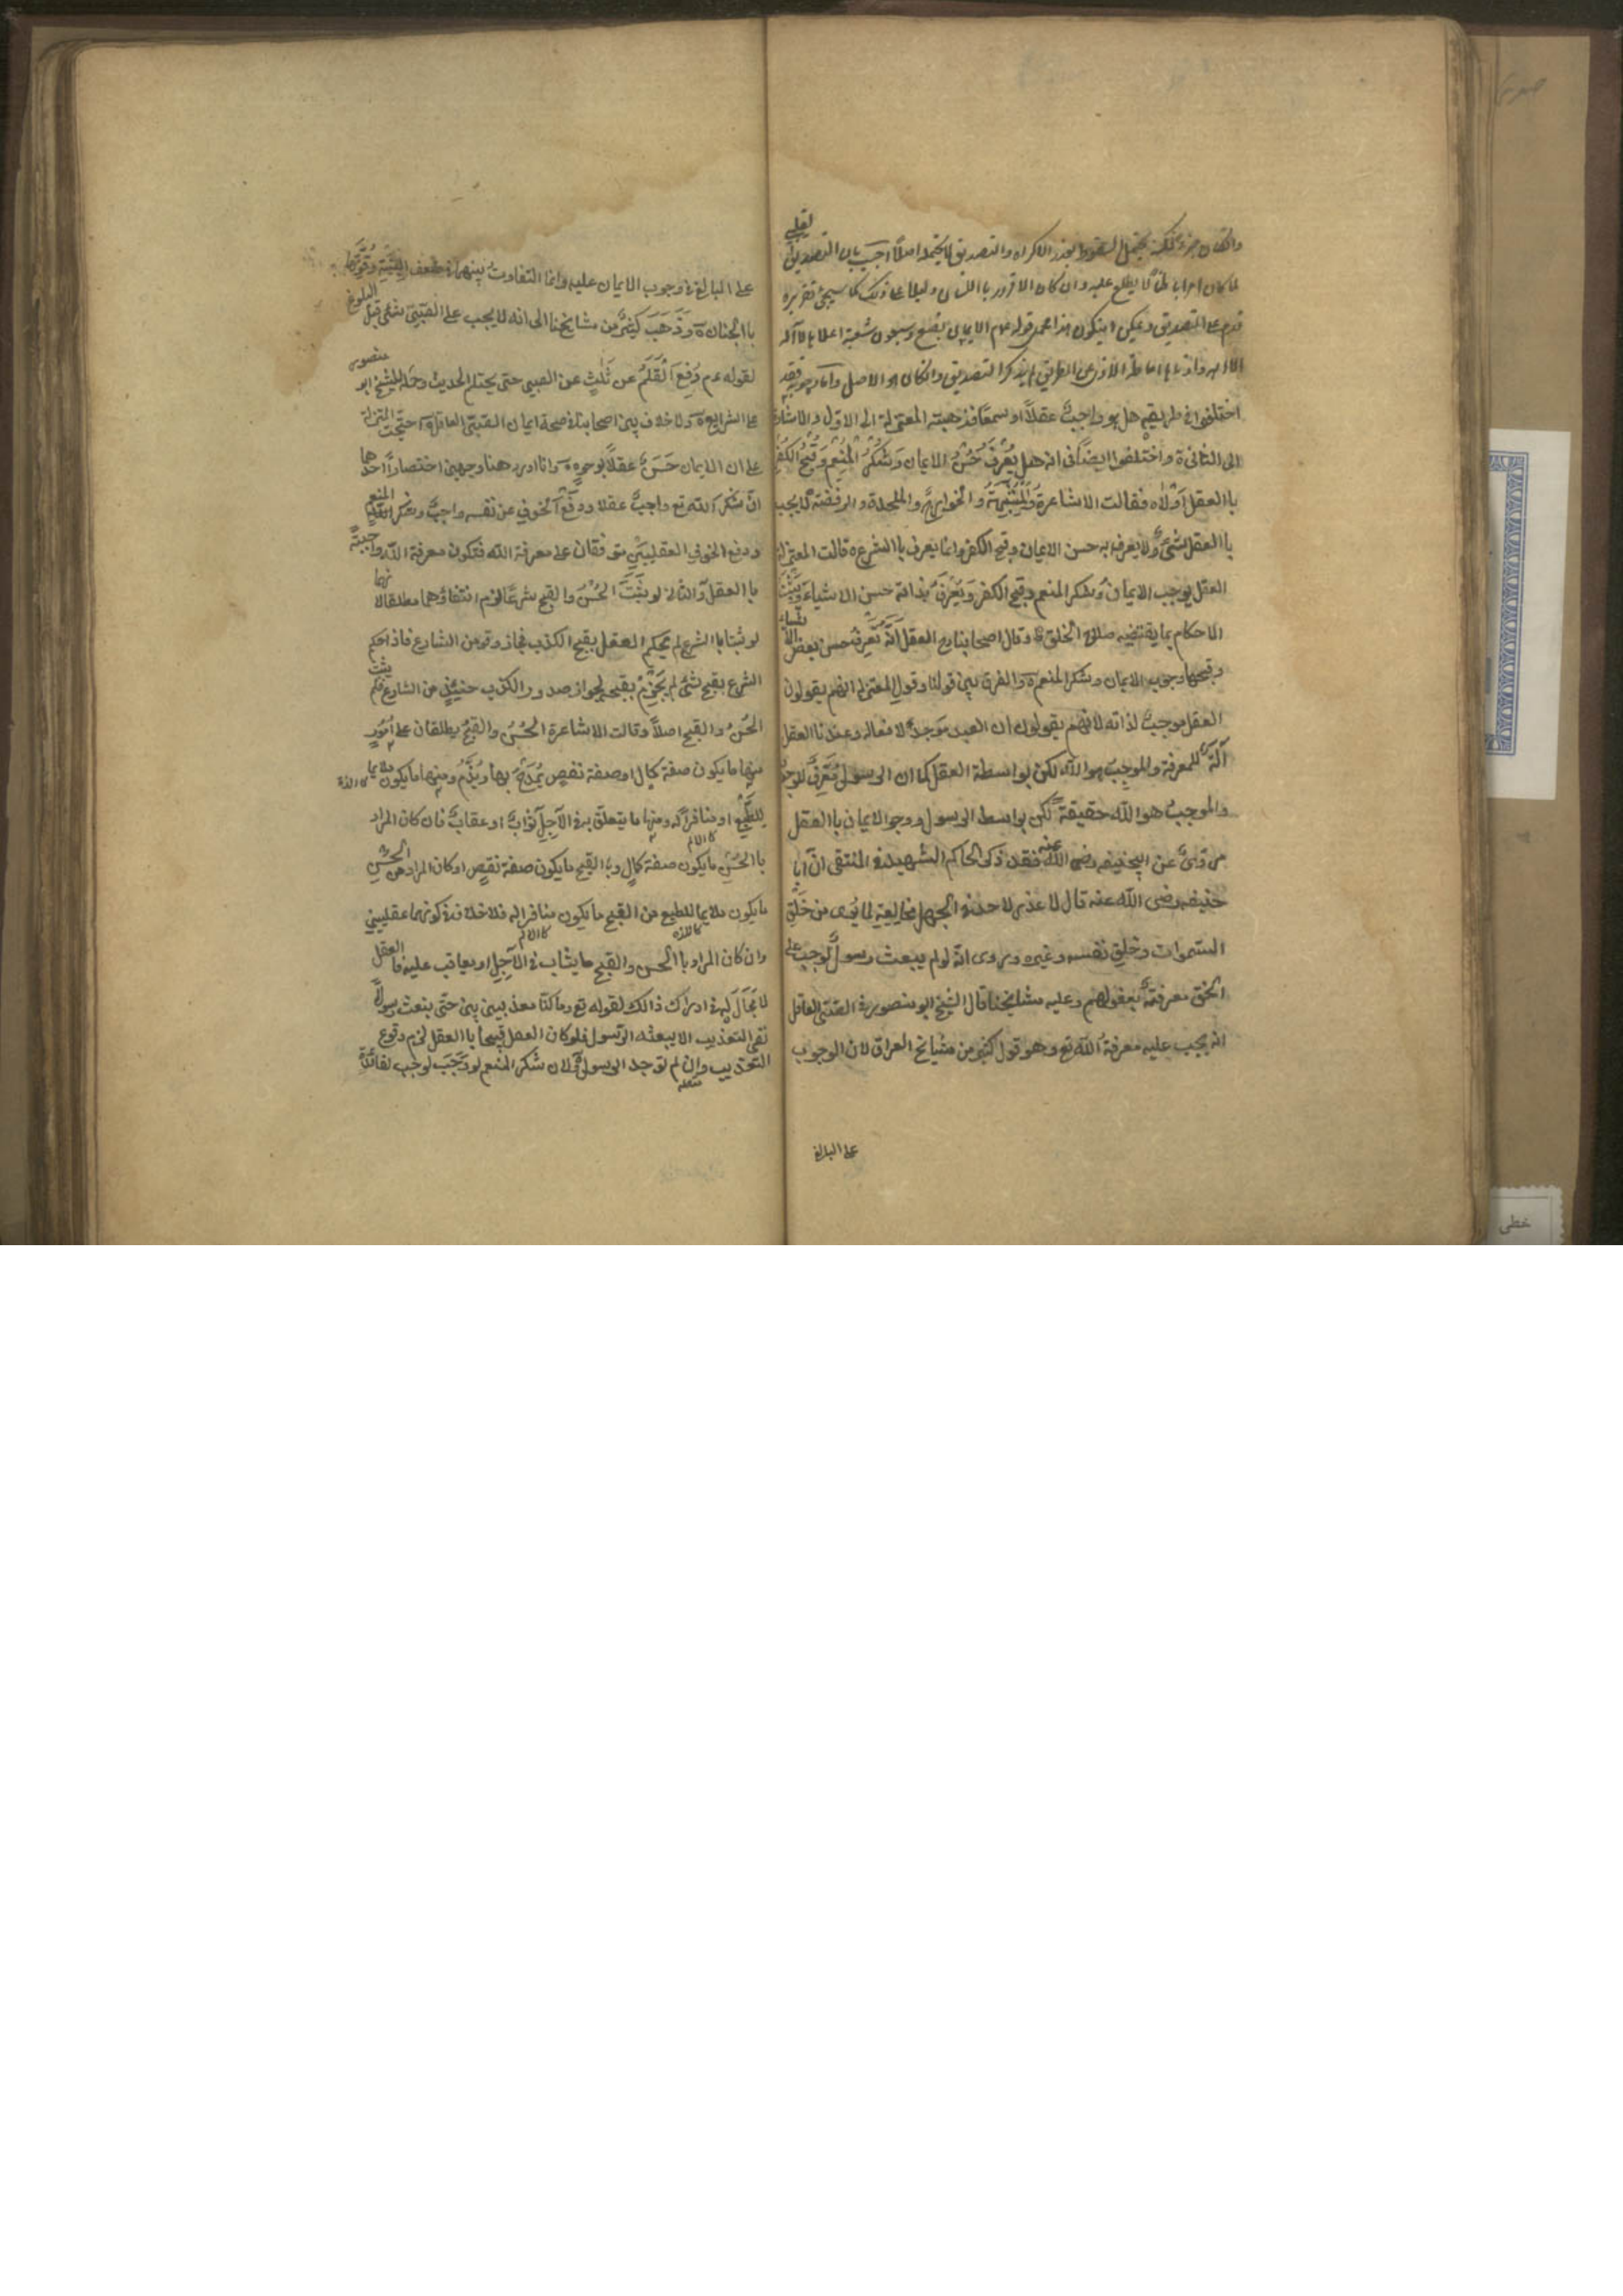 والكان جزء لكنه يحتمل السقوط بعذر الاكراه والتصديق لا يحتمله اصلا اجيب بان التصديق لقلبي
لما كان امرا باطنا لا يطلع عليه وان كان الاقرار باللسان دليلا على ذلك كما سيجئ تقريره
قدم على التصديق ويمكن ان يكون هذا قوله عم الايمان بضع وسبعون شعبة اعلاها لا اله
الا الله وادناها اماطة الاذى عن الطريق لم يذكر التصديق والكان هو الاصل واما وجوبه فقد
اختلفوا في طريقه هل هو واجب عقلا او سمعا فذهبت المعتزلة الى الاول والاشاعرة
الى الثانى ة واختلفوا ايضا فى انه هل يعرف حُسْنُ الايمان وشُكْرُ الْمُنْعِم وَقُبْحُ الكُفْر
باالعقل اَوْلَاه فقالت الاشاعرة وَالْمُشَبِّهَةُ والخوارج والملحدة والرفضة لا يجب
باالعقل شئ ولا يعرف به حسن الايمان وقبح الكفر وانما يعرف باالشرع ه قالت المعتزلة
العقل يوجب الايمان وشكر المنعم وقبح الكفر وَيَعْرِفُ بذاته حسن الاشياء وَيُثْبِتُ
الاحكام بما يقتضيه صلاح الخلق ة وقال اصحابنا رح العقل آلة يُعْرَفُ حسن بعض الاشياء
وقبحها وجوب الايمان وشكر المنعم ة والفرق بين قولنا وقول المعتزلة انهم يقولون
العقل موجب لذاته لانهم يقولون ان العبد موجد لافعاله وعندنا العقل
آلة للمعرفة والموجب هو الله لكن بواسطة العقل كما ان الرسول مُعَرِّف للوجوب
والموجب هو الله حقيقة لكن بواسط الرسول ووجو الايمان باالعقل
مروىّ عن ابيحنيفه رضى الله عنه فقد ذكر الحاكم الشهيد في المنتقى انّ ابا
حنيفه رضى الله عنه قال لا عذر لاحد في الجهل بخالقه لما يُرَى من خَلْقِ
السّموات وخلق نفسه وغيره وروى انه لو لم يبعث رسولا لوجب على
الخلق معرفتُهُ بعقولهم وعليه مشايخنا قال الشيخ ابو منصور في الصّبىّ العاقل
انه يجب عليه معرفةُ الله تع وهو قول كثير من مشيائخ العراق لان الوجوب
على البالغ
على البالغ في وجوب الايمان عليه وانما التفاوت بينهما في ضعف البِنْيَةِ وقُوَّتِهَا
باالجنان ة وَذَهَبَ كَثِيرٌ من مشايخنا الى انه لا يجب على الصّبىّ شئ قبل البلوغ
لقوله عم رُفِعَ الْقَلَمُ عن ثَلْثٍ عن الصبي حتى يحتلم الحديث وحمله الشيخ ابو منصور
على الشرايع ة ولا خلاف بين اصحابنا في صحة ايمان الصّبىّ العاقل ة احتجّت المعتزلة
على ان الايمان حَسَنٌ عقلا بوجوهٍ ة وانا اورد ههنا وجهين اختصارا احدها
انّ شكر الله تع واجب عقلا ودفع الخوف عن نفسه واجب وشكر المنعم
ودفع الخوف العقليين متوقفان على معرفة الله فتكون معرفة اللّه واجبةً
باالعقل والثانى لو ثبت الحُسْنُ والقبح شرعا لزم انتفاؤهما مطلقا لانهما
لو ثبتا باالشرع لم يحكم العقل بقبح الكذب فجاز وقوعه من الشارع فاذا حكم
الشرع بقبح شئ لم يَجْزِمْ بقبحه لجواز صدور الكذب حينئذٍ من الشارع فلم يثبت
الحُسْنُ والقبح اصلاً وقالت الاشاعرة الحُسْنُ والقبحُ يطلقان على اُمُورٍ
منها ما يكون صفة كمال او صفة نقصٍ يُمْدَحُ بها ويُذَمُّ ومنها ما يكون ملايما كاللذة
لِلطَّبْعِ او منافرا له ومنها ما يتعلق به في الآجل ثوابٌ او عقابٌ فان كان المراد
كالالم
باالحُسْنِ ما يكون صفة كمالٍ وباالقبح ما يكون صفة نقصٍ او كان المراد من الحُسْنِ
ما يكون ملايما للطبع من القبح ما يكون منافرا له فلا خلاف في كونهما عقليين
كاللذه كالالم
وان كان المراد باالحسن والقبح ما يثاب في الآجل او يعاقب عليه فا العقل
لا مَجَالَ له في ادراك ذالك لقوله تع وما كنّا معذبيين حتّى نبعث رسولًا
نفى التعذيب الا ببعثه الرّسول فلو كان العقل قبيحا باالعقل لزم وقوع
التعذيب وان لم توجد الرسول ة ولان شكر المنعم لو وَجَبَ لوجب لفائدةٍ
خطى